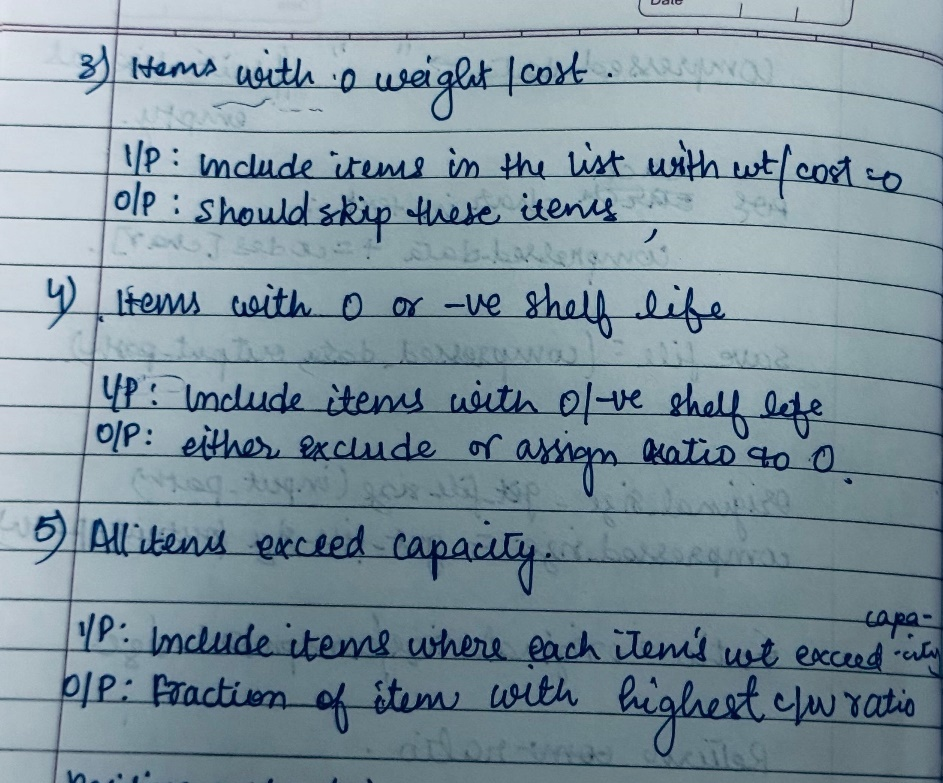 Date
3) Items with 0 weight / cost .
I/P : include items in the list with wt/cost =0
O/P : Should skip these items
4) Items with 0 or -ve shelf life
I/P : Include items with 0/-ve shelf life
O/P : either exclude or assign ratio to 0.
5) All items exceed capacity.
I/P : Include items where each item's wt exceed capa-
-city
O/P : Fraction of item with highest c/w ratio